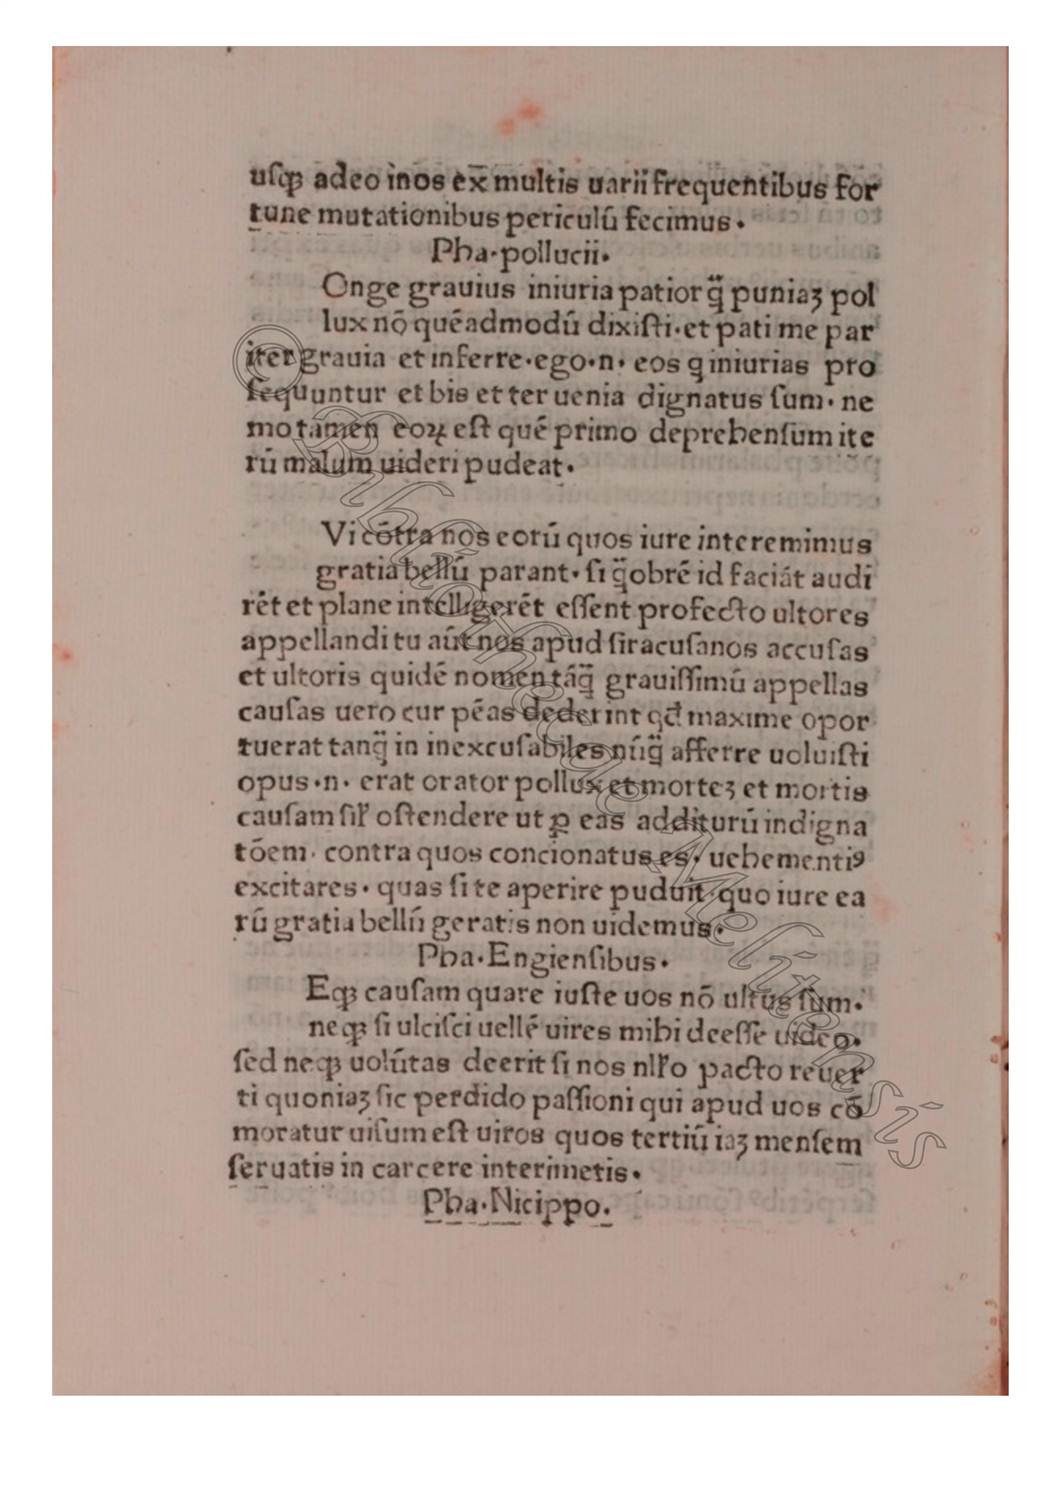 uſqꝫ adeo ı̀nos ex̄ multis uarii frequentibus for
tune mutationibus periculū fecimus.
Pha.pollucii.
Onge grauius iniuria patior q̈̄ puniaꝫ pol
lux nō quēadmodū dixiſti.et pati me par
iter grauia et inferre.ego.n. eos q iniurias pro
ſequuntur et bis et ter uenia dignatus ſum. ne
mo tamen eoꝝ eſt quē primo deprehenſum ite
rū malum uideri pudeat.
Vi cōtra nos eorū quos iure interemimus
gratia bellū parant. ſi q̄obrē id faciāt audi
rēt et plane intelligerēt eſſent profecto ultores
appellandi tu aūt nos apud ſiracuſanos accuſas
et ultoris quidē nomen tāq̄ grauiſſimū appellas
cauſas uero cur pēas dederint qđ maxime opor
tuerat tanq̄ in inexcuſabiles nūq̄ afferre uoluiſti
opus.n. erat orator pollux et morteꝫ et mortis
cauſam ſiľ oſtendere ut ꝑ eas additurū indigna
tōem. contra quos concionatus es. uehementiꝰ
excitares. quas ſi te aperire puduit.quo iure ea
rū gratia bellū geratis non uidemus.
Pha.Engienſibus.
Eqꝫ cauſam quare iuſte uos nō ultus ſum.
neqꝫ ſi ulciſci uellē uires mihi deeſſe uideo.
ſed neqꝫ uolūtas deerit ſi nos nľo pacto reuer
ti quoniaꝫ ſic perdido paſſioni qui apud uos cō
moratur uiſum eſt uiros quos tertiū iaꝫ menſem
ſeruatis in carcere interimetis.
Pha.Nicippo.
© Bibliothecae Melitensis